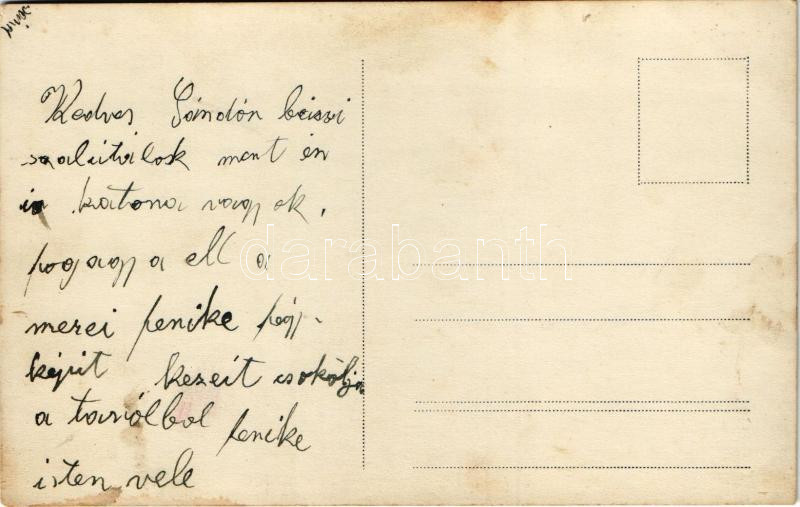 Kedves Sándor bácsi
szalutálok mert én
is katona vagyok,
fogagya ell a
merei ferike fény-
képit kezeit csokólja
a tavólbol ferike
isten vele
darabanth